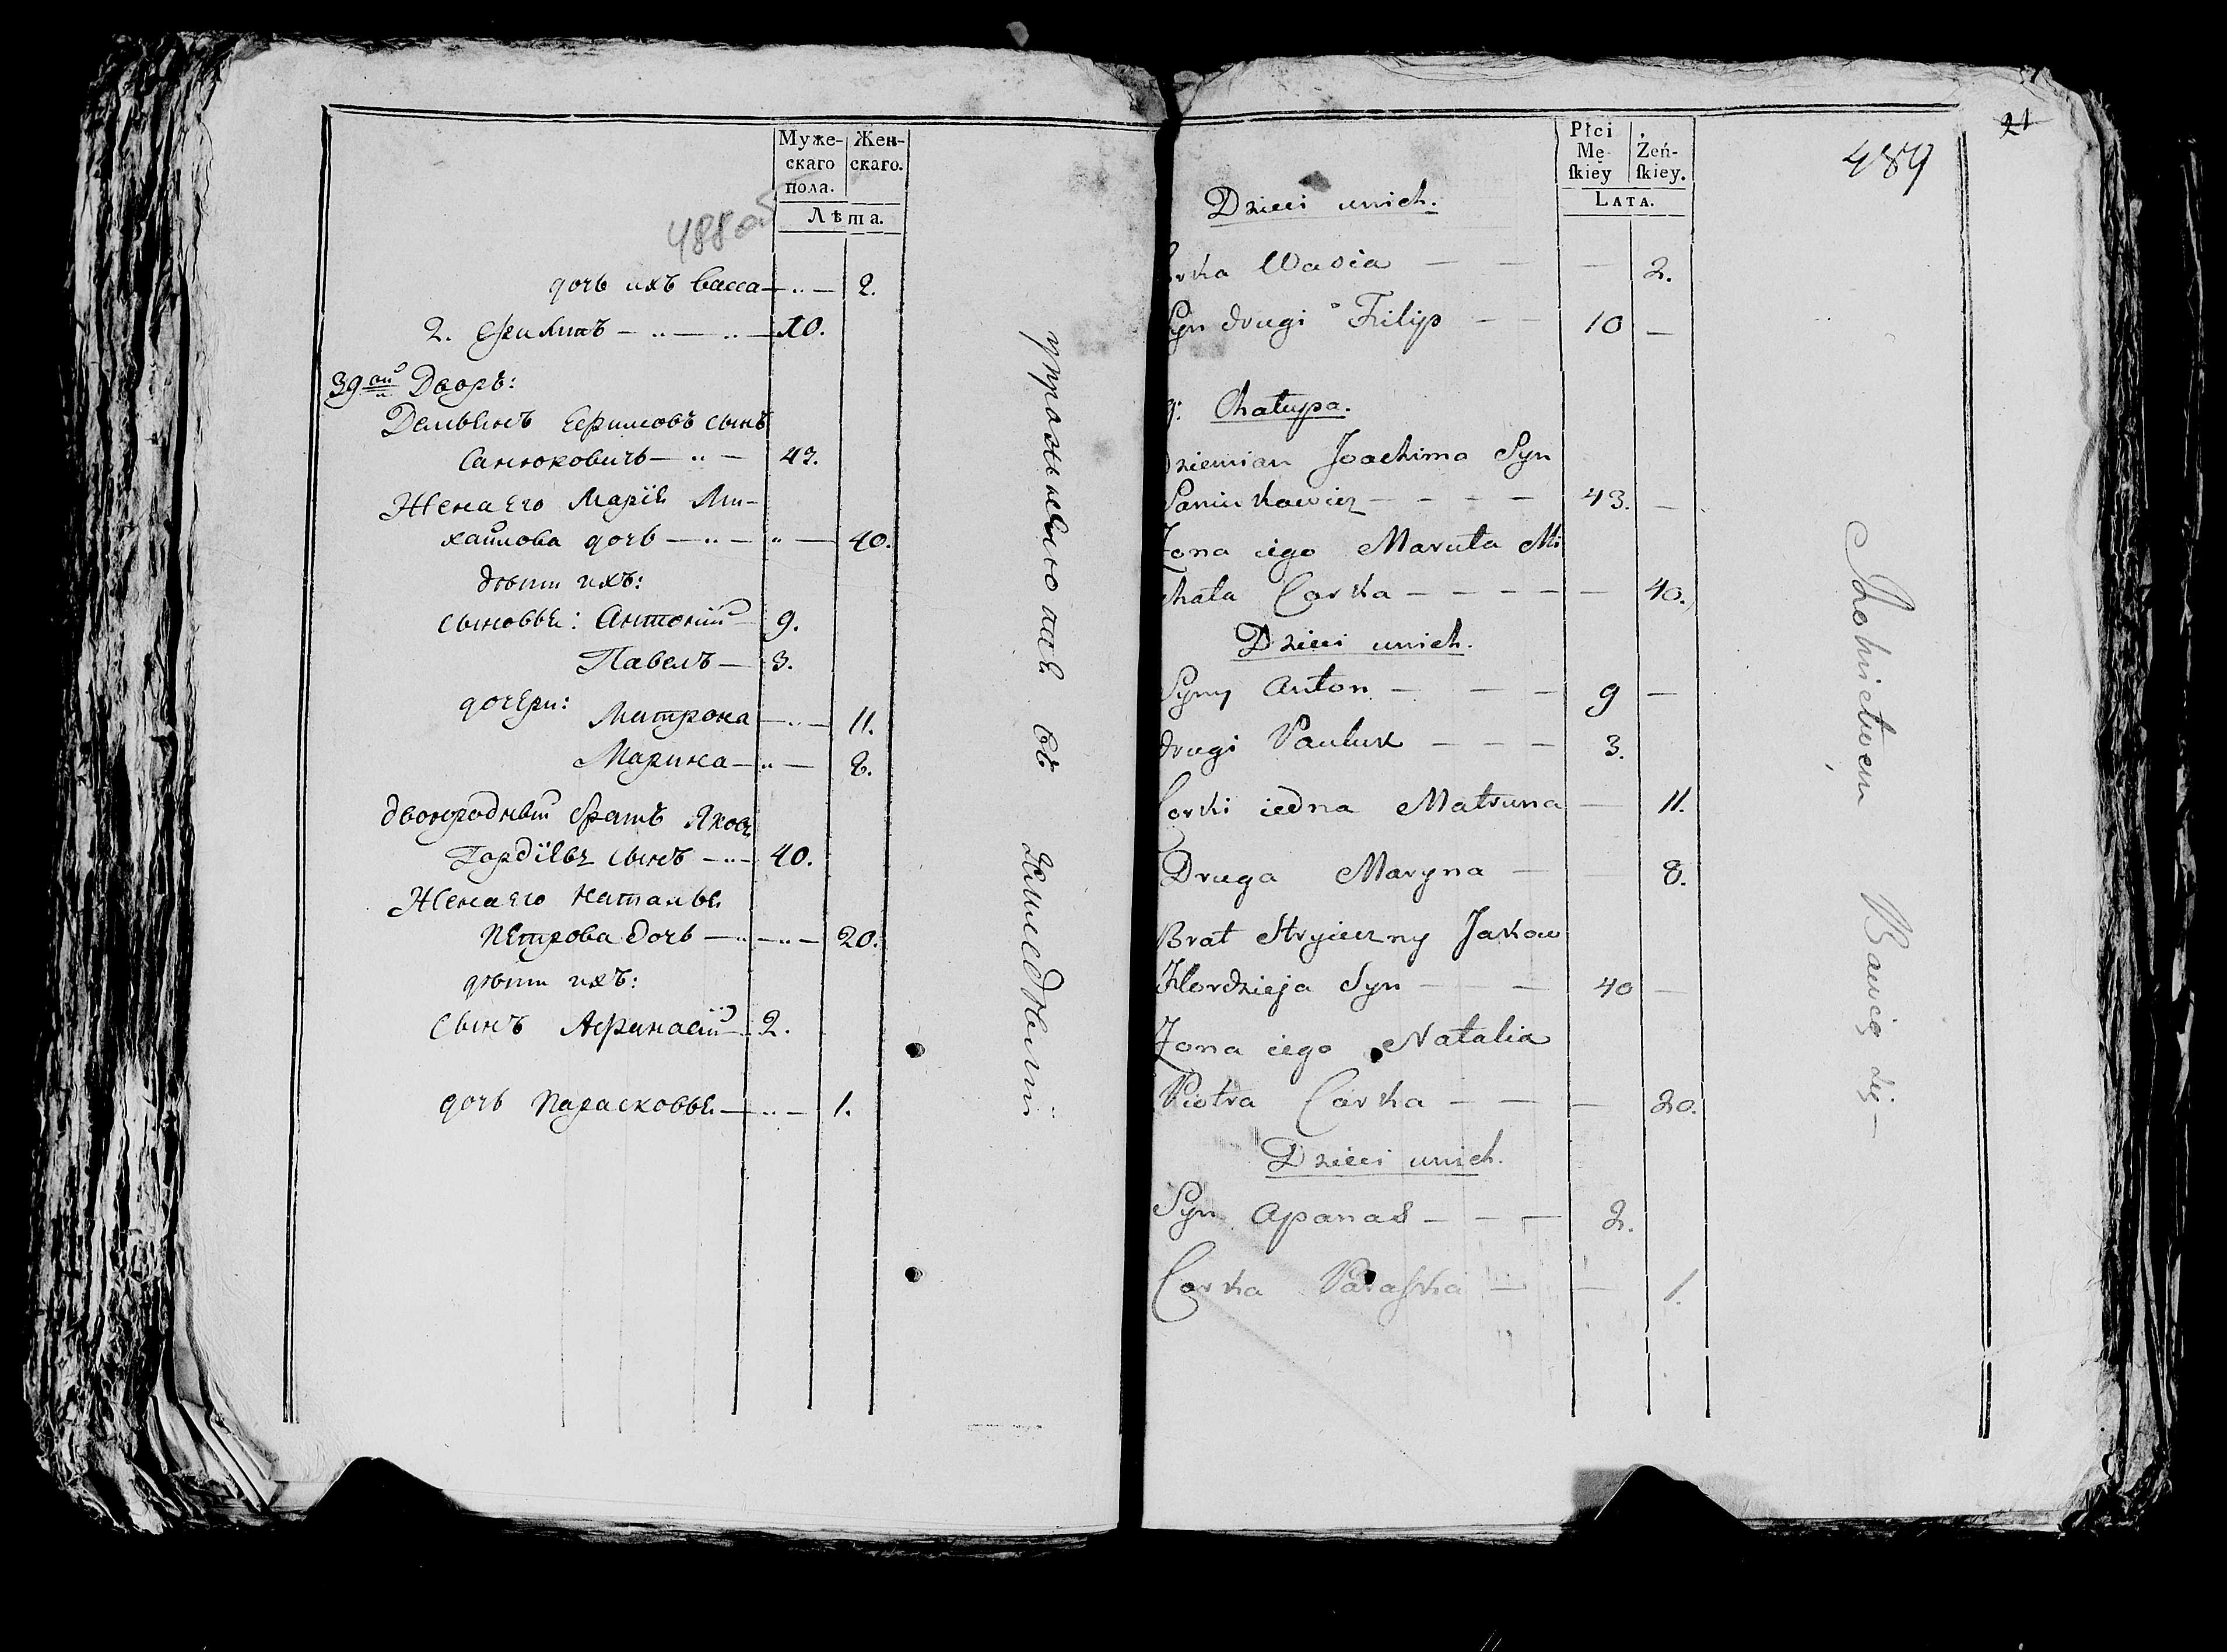 Муже- Жен-
скаго скаго.
пола.
Лѣта.
488об
дочь ихъ Васса — 2.
2. Филипъ — 10.
39ый Дворъ:
Демьянъ Ефимовъ сынъ
Санюковичъ — 43.
Жена его Марія Ми-
хайлова дочь — 40.
дѣти ихъ:
сыновья: Антоній — 9.
Павелъ — 3.
дочери: Матрона — 11.
Марина — 8.
двоюродный братъ Яковъ
Гордѣевъ сынъ — 40.
Жена его Наталья
Петрова дочь — 20.
дѣти ихъ:
сынъ Афанасій — 2.
дочь Парасковья — 1.
въ
21
489
Płci
Mę- Żeń-
ſkiey ſkiey.
LATA.
Dzieci unich.
orka Wasia — — — 2.
Syn drugi Filip — — 10 —
9. Chałupa.
Dziemian Joachima Syn
Saniukowicz — — — — 43. —
Żona iego Maruta Mi
chała Corka — — — — — 40.
Dzieci unich.
Syny Anton — — — 9 —
drugi Pauluk — — — 3.
Corki iedna Matruna — 11.
Druga Maryna — — 8.
Brat Stryieczny Jakow
Hordzieja Syn — — — 40 —
Żona iego Natalia
Piotra Corka — — — 20.
Dzieci unich.
Syn Apanas — — — 2.
Corka Paraſka — — 1.
Rolnictwem Bawią się —